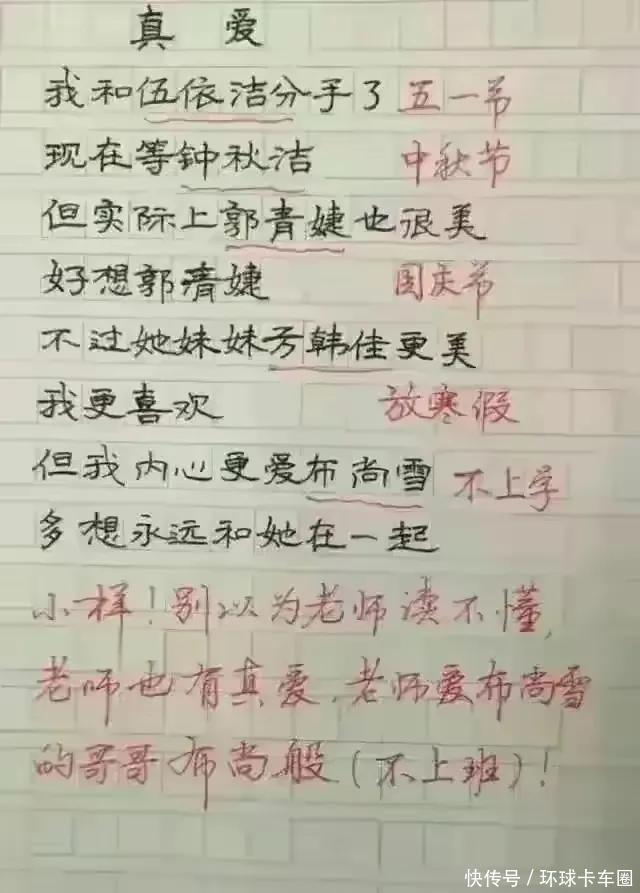 真 爱
我和伍依洁分手了 五一节
现在等钟秋洁 中秋节
但实际上郭青婕也很美
好想郭清婕 国庆节
不过她妹妹方韩佳更美
我更喜欢 放寒假
但我内心更爱布尚雪 不上学
多想永远和她在一起
小样！别以为老师读不懂,
老师也有真爱.老师爱布尚雪
的哥哥布尚般(不上班)！
快传号/环球卡车圈